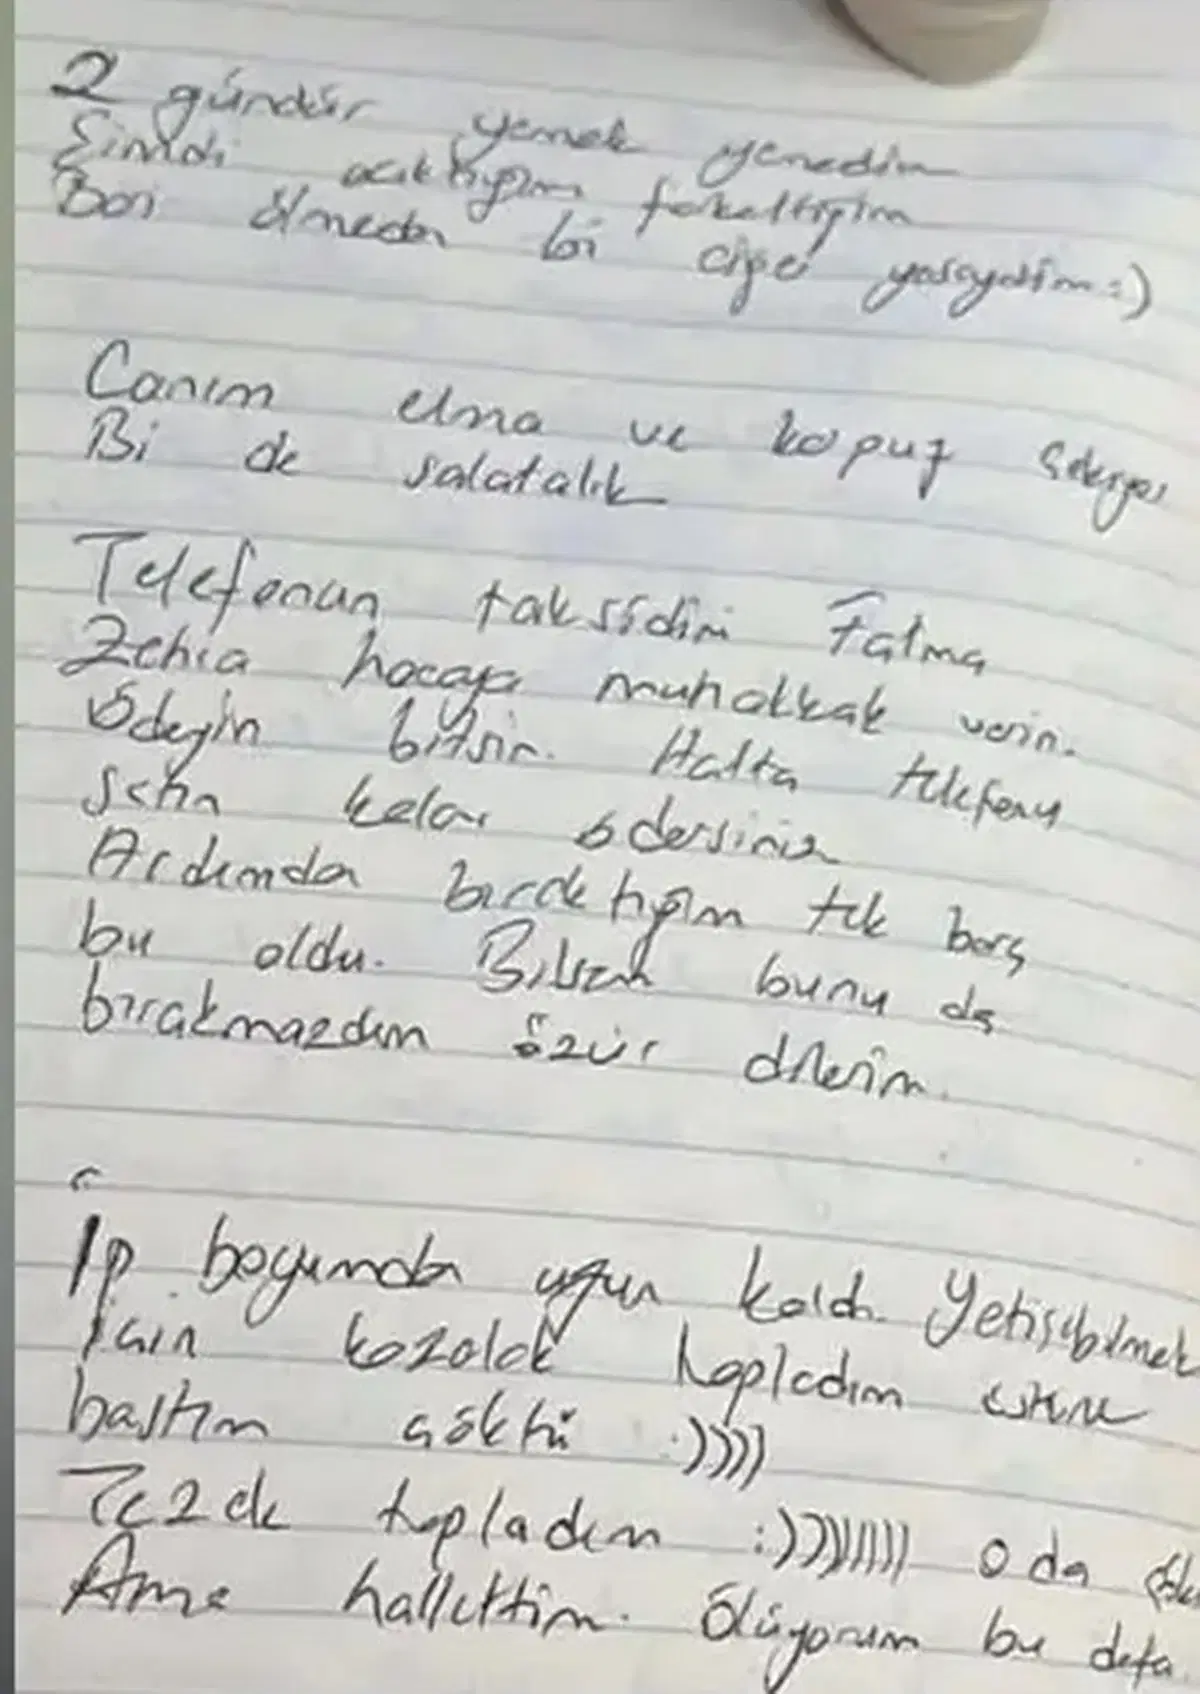 2 gündür yemek yemedim
Şimdi acıktığımı farkettiğim
Bari ölmeden bi çiğe yasaydım :)
Canım elma ve kapuz çekiyor
Bi de salatalık
Telefonun taksidini Fatma
Zehra hocaya muhakkak verin.
Ödeyin bitsin. Hatta telefonu
satın kalar ödersiniz
Ardımdan bıraktığım tek borç
bu oldu. Bilsem bunu da
bırakmazdım özür dilerim.
İp boyumdan uzun kaldı. Yetişebilmek
İçin kozalak topladım üstüne
bastım çöktü :))))
Tezek topladım :))))))))) o da
Ama hallettim. Ölüyorum bu defa.